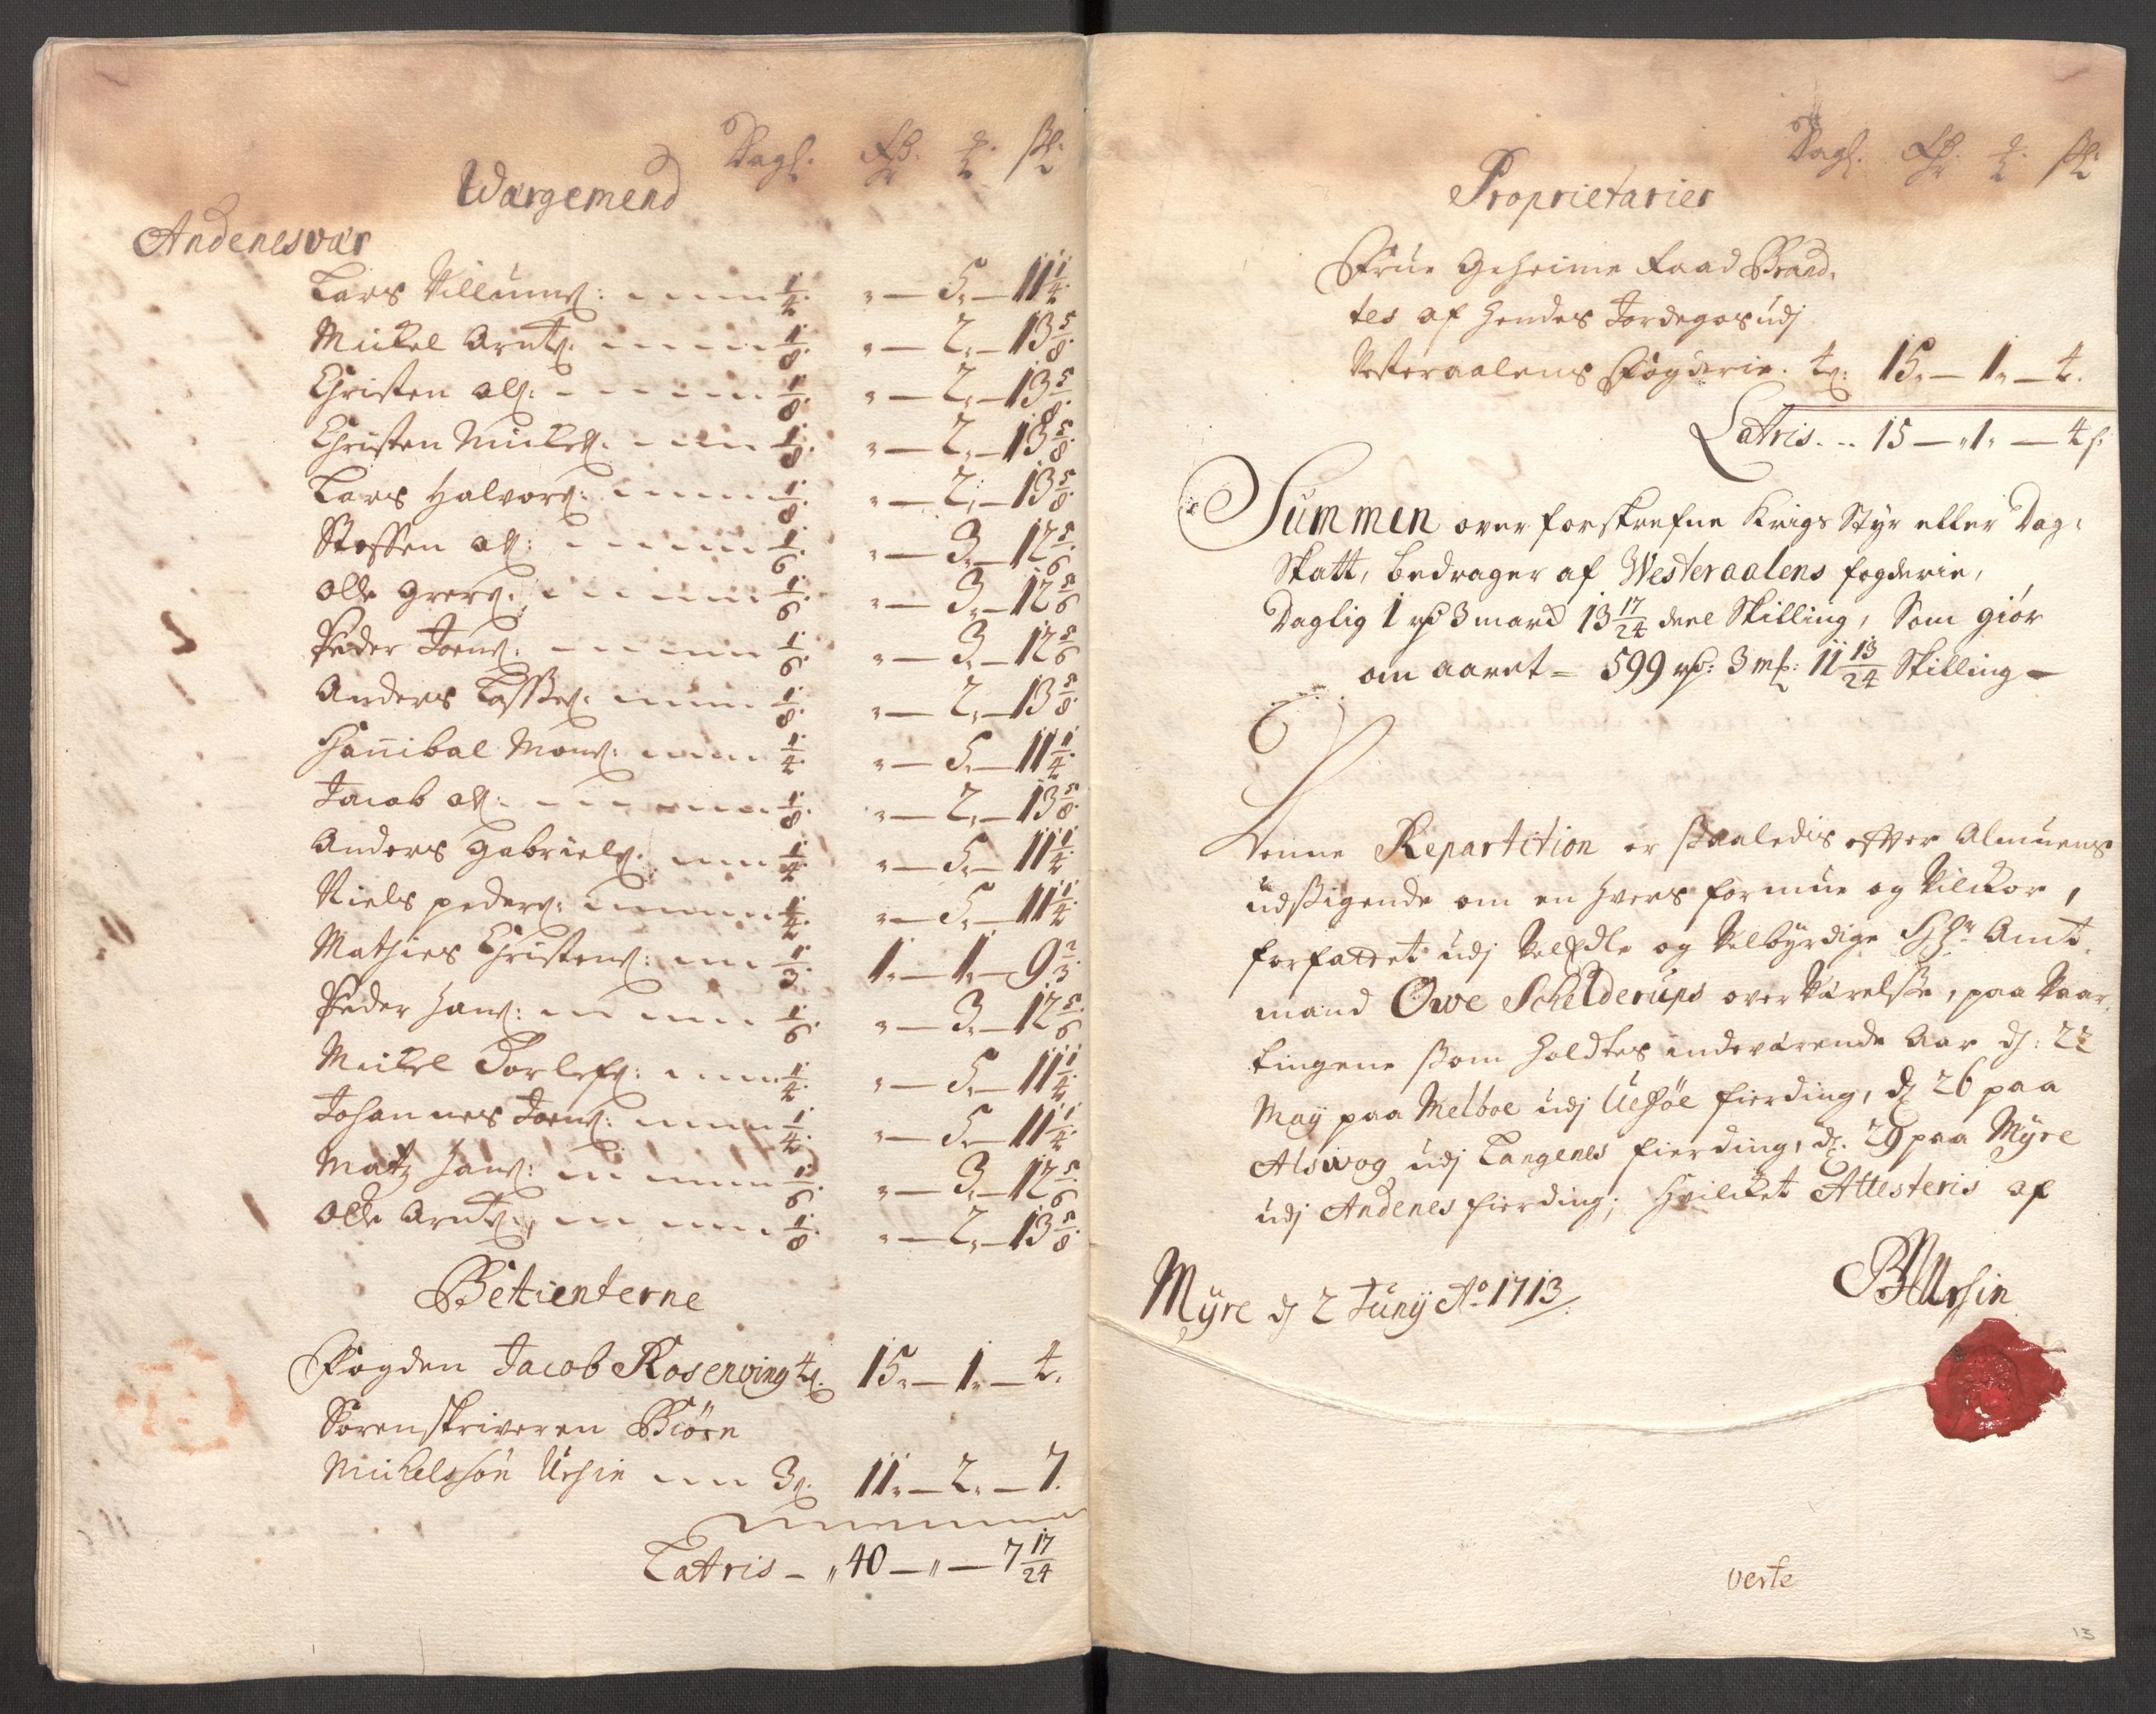 Dagl. Rd. mk ß
Wærgemend
Andenesvær
Lars Villums: 1/4. „ — 5. — 11 1/4
Mickel Arnts: 1/8. „ — 2. — 13 5/8
Christen Ols: 1/8. „ — 2. — 13 5/8
Christen Mickels: 1/8. „ — 2. — 13 5/8
Lars Halvors: 1/8. „ — 2. — 13 5/8
Steffen Ols: 1/6. „ — 3. — 12 5/6
Olle Grers: 1/6. „ — 3. — 12 5/6
Peder Joens: 1/6. „ — 3. — 12 5/6
Anders Lasses: 1/8. „ — 2. — 13 5/8
Hannibal Mons: 1/4. „ — 5. — 11 1/4
Jacob Ols: 1/8. „ — 2. — 13 5/8
Anders Gabriels: 1/4. „ — 5. — 11 1/4
Niels peders: 1/4. „ — 5. — 11 1/4
Mathies Christens: 1/3. 1. — 1. — 9 2/3
Peder Hans: 1/6. „ — 3. — 12 5/6
Mickel Torlefs: 1/4. „ — 5. — 11 1/4
Johannes Joens: 1/4. „ — 5. — 11 1/4
Matz Hans: 1/6. „ — 3. — 12 5/6
Olle Arnts: 1/8. „ — 2. — 13 5/8
Betienterne
Fogden Jacob Rosenving 4ß. 15. — 1. — 4.
Sorenskriveren Biörn
Michelssön Ursin 3ß. 11. — 2. — 7.
Latris — „ 40 — „ — 7 17/24
Dagl. Rd. mk ß
Proprietarier
Frue Geheime Raad Brand-
tes af Hendes Jordegos udj
Vesteraalens Fogderie. 4ß: 15. — 1. — 4.
Latris... 15 — „ 1. — 4 ß
Summen over forskrefne Krigs Styr eller Dag-
Skatt, bedrager af Westeraalens fogderie,
Daglig 1 rd 3 mard 13 17/24 deel Skilling, Som giör
om aaret = 599 rd: 3 mk: 11 13/24 Skilling —
Denne Repartition er saaledis efter Almuens
udsigende om en hvers formue og Vilckor,
forfattet udj Veledle og Velbyrdige Hr Amt-
mand Owe Schelderups overværelse, paa Vaar-
tingene som holdtes indeværende Aar d: 22
May paa Melboe udj Ulföe fierding, d 26 paa
Alswog udj Langenes fierding, d. 29 paa Myre
udj Andenes fierding; hvilcket Attesteris af
Myre d 2 Junij Ao 1713
BMUrsin
verte
13